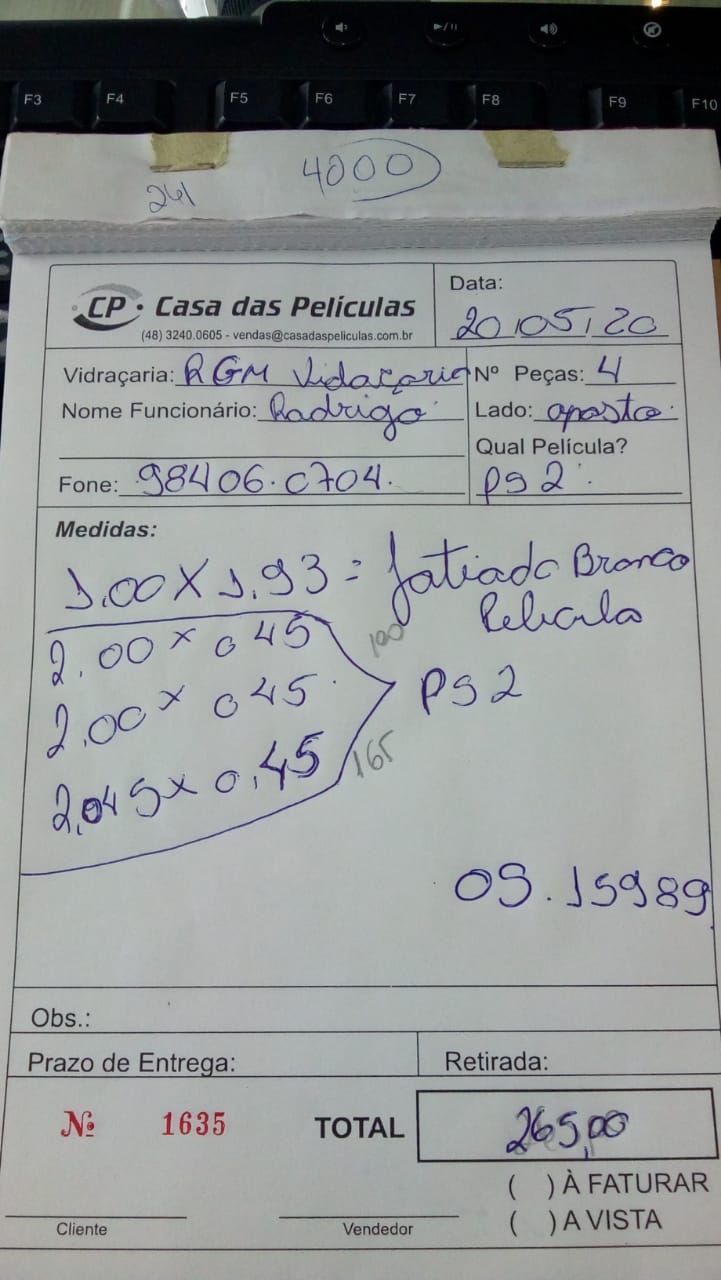 F3 F4 F5 F6 F7 F8 F9 F10
4000
241
CP · Casa das Películas
(48) 3240.0605 - vendas@casadaspeliculas.com.br
Data:
20/05/20
Vidraçaria: RGM Vidaçaria
Nº Peças: 4
Nome Funcionário: Rodrigo
Lado: oposto
Qual Película?
Fone: 98406.0704.
PS2
Medidas:
1.00 X 1.93 = Jatiado Branco
Pelicula
2.00 x 0 45
100
2.00 x 0 45
PS2
2,045 x 0,45
165
OS. 15989
Obs.:
Prazo de Entrega:
Retirada:
Nº 1635
TOTAL
265,00
( ) À FATURAR
( ) A VISTA
Cliente
Vendedor